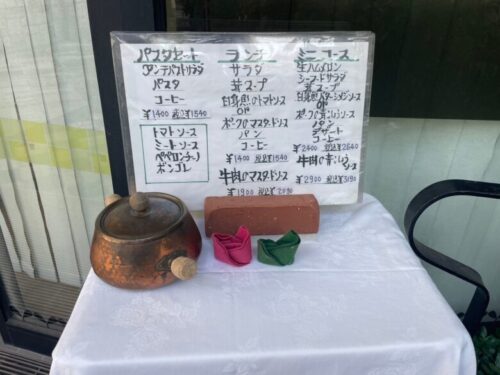 パスタセット
アンテパストサラダ
パスタ
コーヒー
¥1400 税込¥1540
トマトソース
ミートソース
ペペロンチーノ
ボンゴレ
ランチ
サラダ
茸スープ
白身魚のトマトソース
OR
ポークのマスタードソース
パン
コーヒー
¥1400 税込¥1540
牛肉のマスタードソース
¥1900 税込¥2090
ミニコース
生ハムメロン
シーフードサラダ
茸スープ
OR
ポークの青こしょうソース
パン
デザート
コーヒー
¥2400 税込¥2640
牛肉の青こしょう
ソース
¥2900 税込¥3190